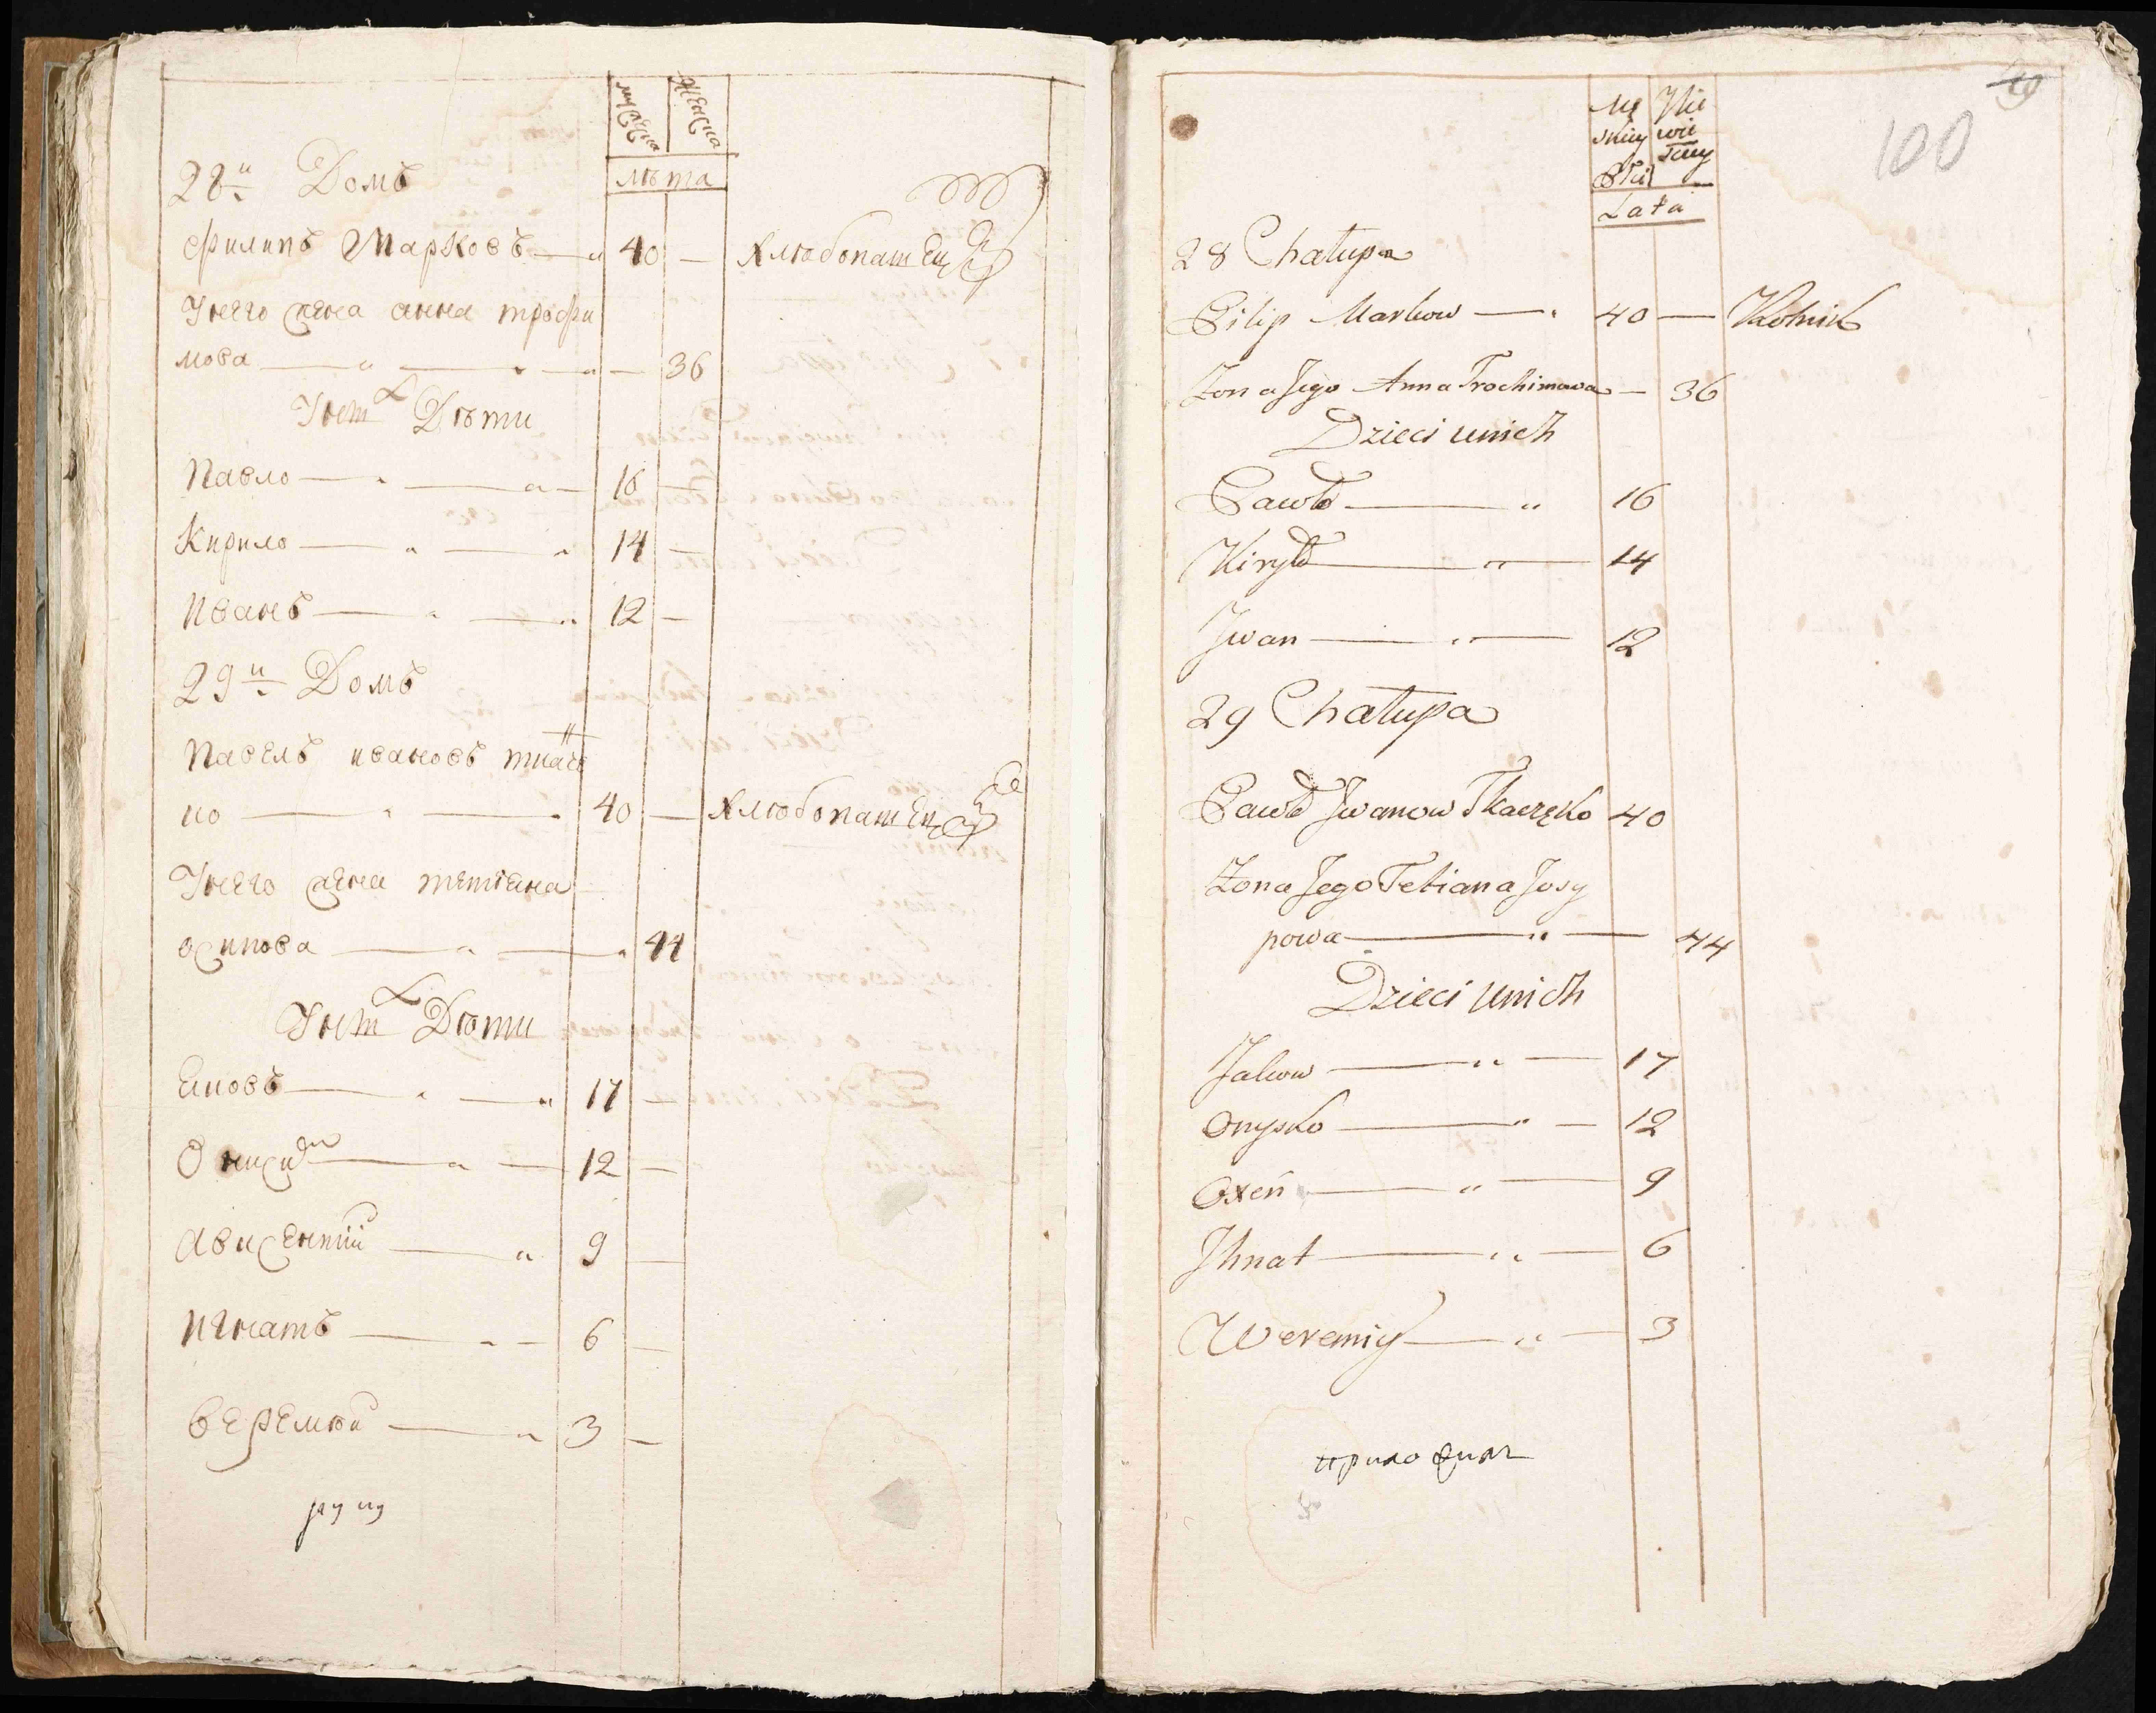 мужеска
женска
лѣта
28й Домъ
Филипъ Марковъ 40 — Хлѣбопашец
У него жена анна трофи
мова — 36
У них Дѣти
Павло 16 —
Кирило 14 —
Иванъ 12 —
29й Домъ
Павелъ ивановъ ткаченко
ко 40 — Хлѣбопашец
У него жена тетiана
осипова 44
У них Дѣти
Яковъ 17 —
Онисим 12 —
Авксентiй 9 —
Игнатъ 6 —
Веремѣй 3 —
руку
100
Mę Nie
skiey wie
Płci sciey
Lata
28 Chałupa
Pilip Markow — 40 — Rolnik
Zona Jego Anna Trochimowa — 36
Dzieci unich
Pawło — 16
Kiryło — 14
Jwan — 12
29 Chałupa
Pawło Jwanow Tkaczęko 40
Zona Jego Tetiana Josy
powa — 44
Dzieci Unich
Jakow — 17
Onysko — 12
Oxeń — 9
Jhnat — 6
Weremiy — 3
приложилъ